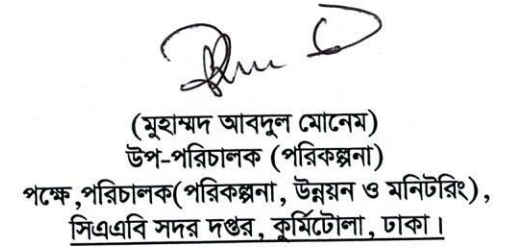 (মুহাম্মদ আবদুল মোনেম)
উপ-পরিচালক (পরিকল্পনা)
পক্ষে,পরিচালক(পরিকল্পনা, উন্নয়ন ও মনিটরিং),
সিএএবি সদর দপ্তর, কুর্মিটোলা, ঢাকা।